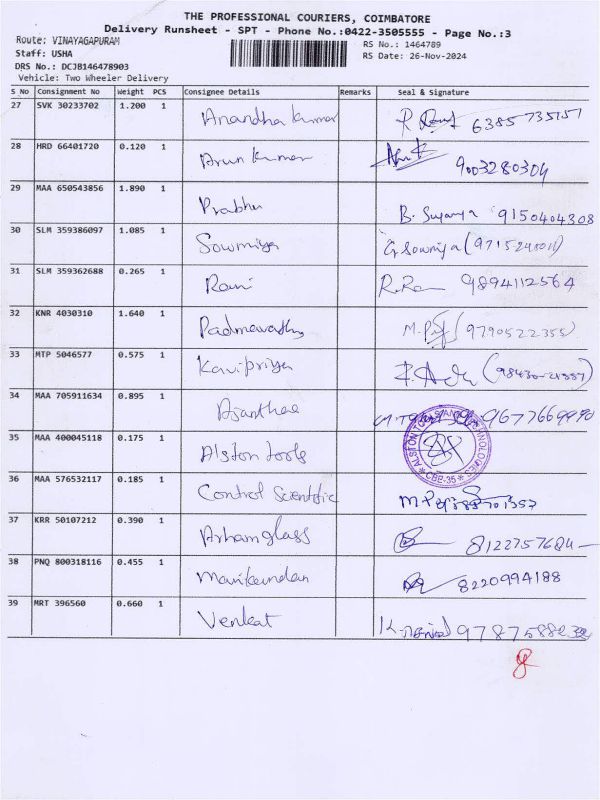 THE PROFESSIONAL COURIERS, COIMBATORE
Delivery Runsheet - SPT - Phone No.:0422-3505555 - Page No.:3
Route: VINAYAGAPURAM
RS No.: 1464789
Staff: USHA
RS Date: 26-Nov-2024
DRS No.: DCJB146478903
Vehicle: Two Wheeler Delivery
S No Consignment No Weight PCS Consignee Details Remarks Seal & Signature
27 SVK 30233702 1.200 1 Anandha kumar 6385735151
28 HRD 66401720 0.120 1 Arun kumar 9003280304
29 MAA 650543856 1.890 1 Prabhu B. Suganya 9150404308
30 SLM 359386097 1.085 1 Sowmiya G. Sowmiya
31 SLM 359362688 0.265 1 Rani 9894112564
32 KNR 4030310 1.640 1 Padmavathy (9790522355)
33 MTP 5046577 0.575 1 Kavipriya
34 MAA 705911634 0.895 1 Ajanthaa
35 MAA 400045118 0.175 1 Alston tools ALSTON TOOLS AND TECHNOLOGIES CBE-35
36 MAA 576532117 0.185 1 Control Scientific
37 KRR 50107212 0.390 1 Arham glass 8122757684
38 PNQ 800318116 0.455 1 Manikandan 8220994188
39 MRT 396560 0.660 1 Venkat